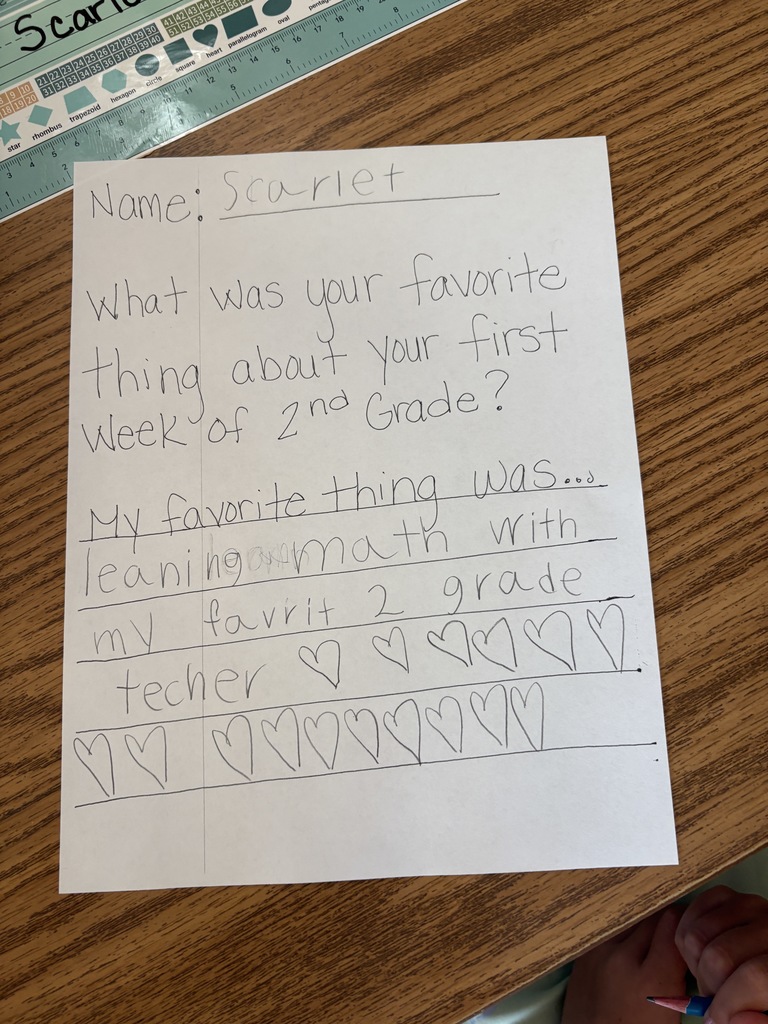 Scarle
41 42 43 44 45
51 52 53 54 55
21 22 23 24 25 26 27 28 29 30
31 32 33 34 35 36 37 38 39 40
9 10
18 19 20
star rhombus trapezoid hexagon circle square heart parallelogram oval
Name: Scarlet
What was your favorite
thing about your first
week of 2nd Grade?
My favorite thing was...
leaning math with
my favrit 2 grade
techer